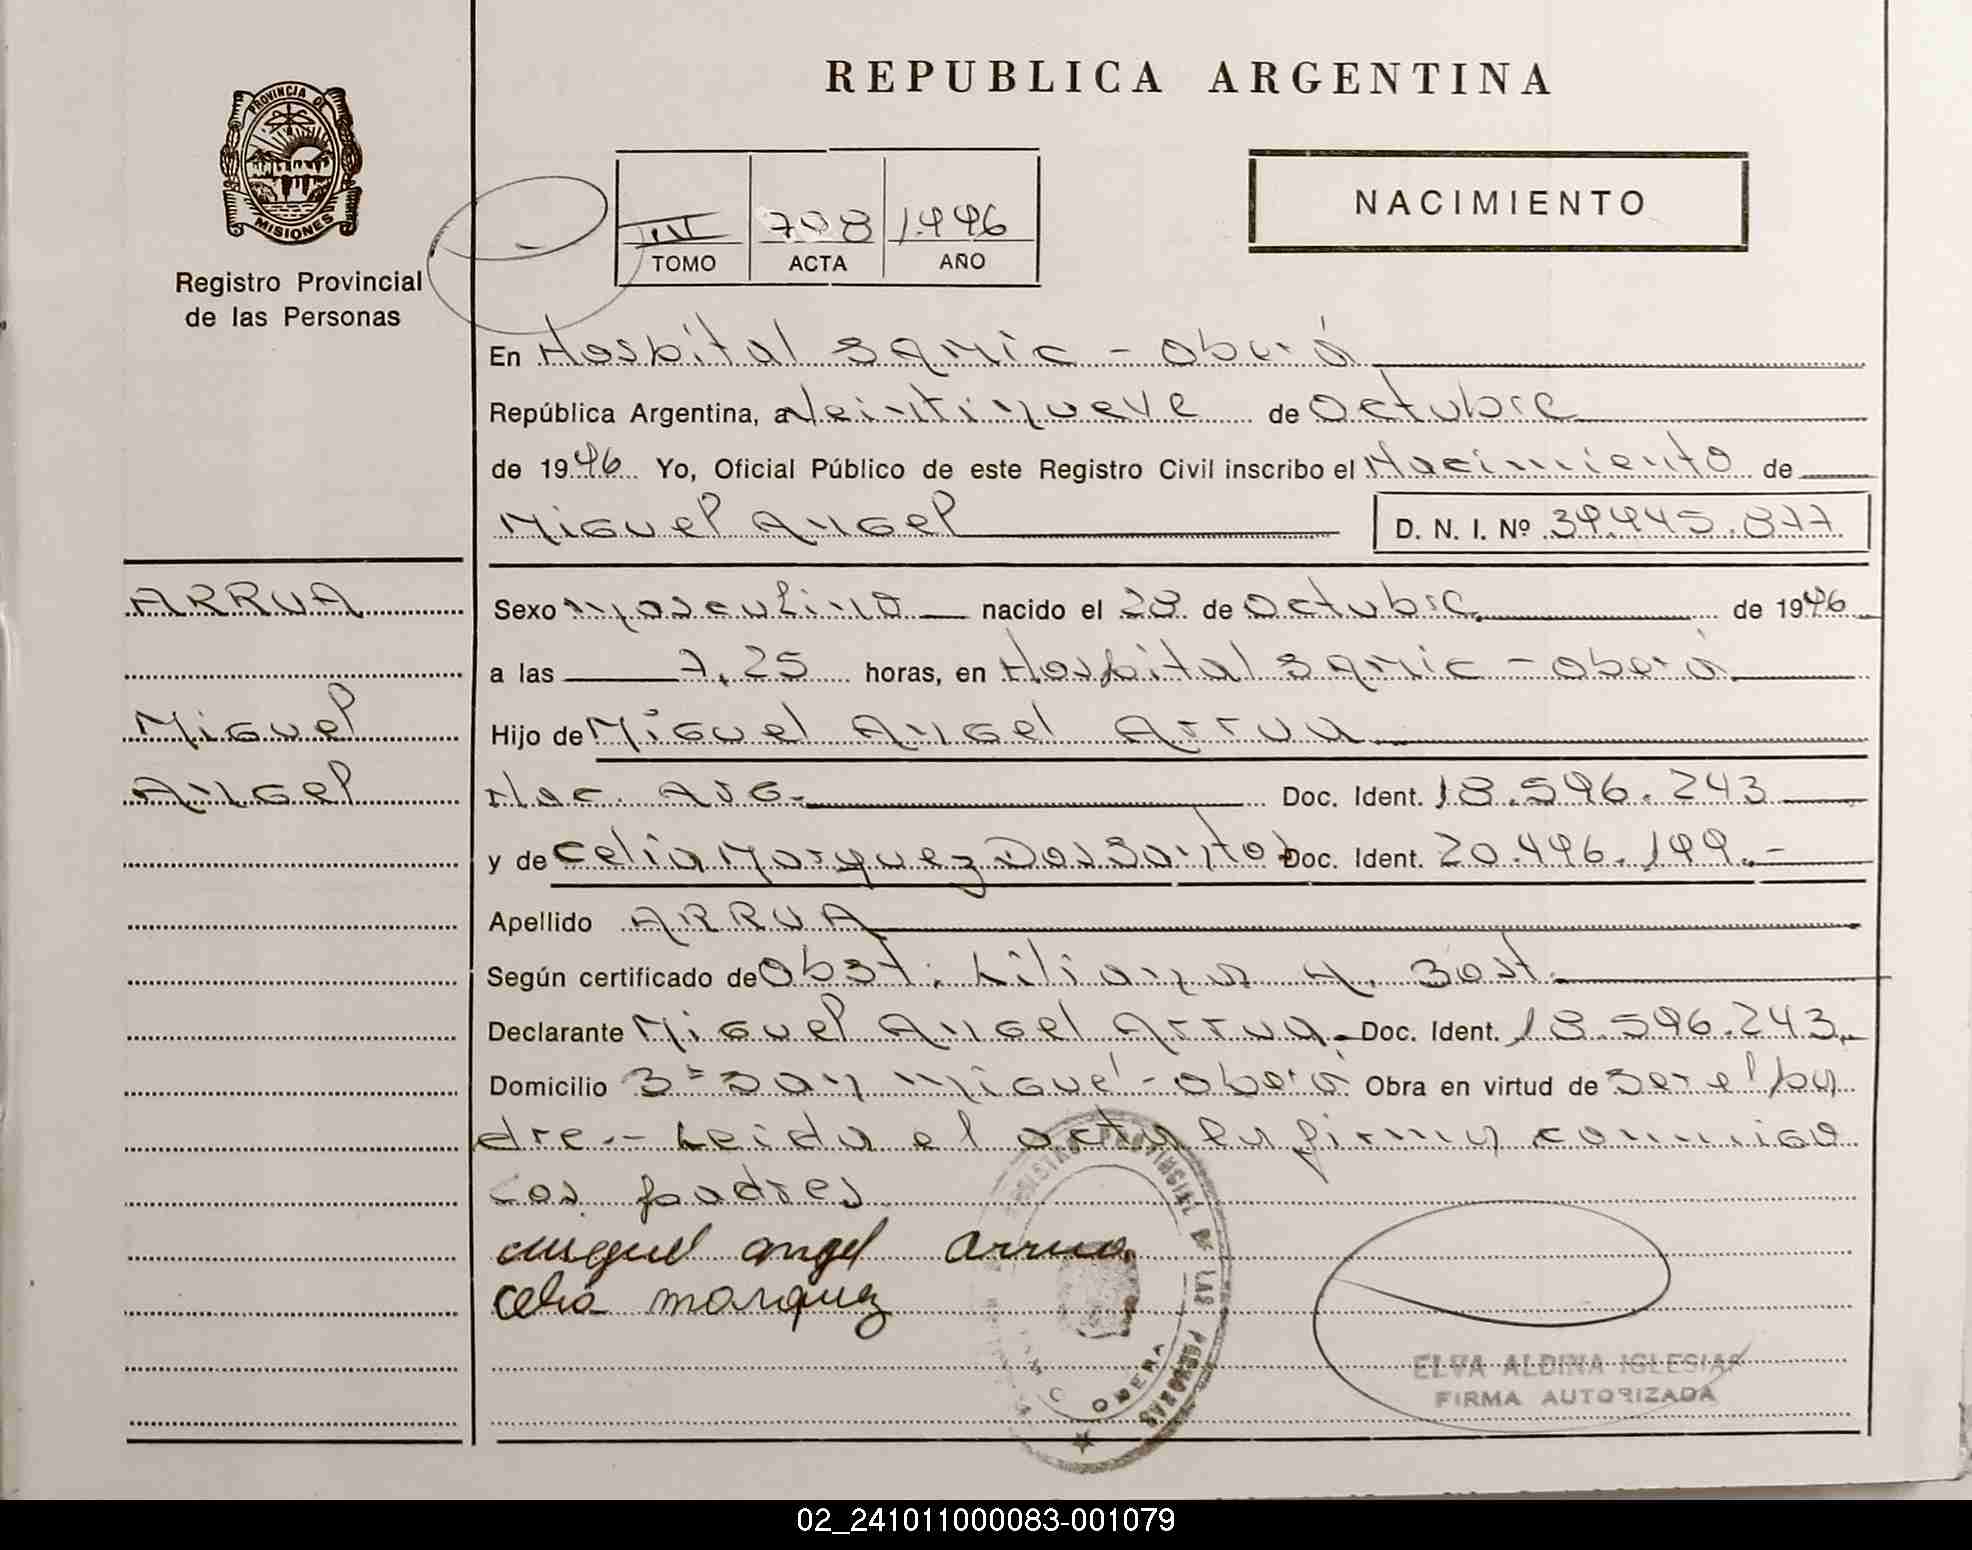 REPUBLICA ARGENTINA
PROVINCIA DE
MISIONES
Registro Provincial
de las Personas
NACIMIENTO
III 708 1.996
TOMO ACTA AÑO
En Hospital Samic - Oberá
República Argentina, a Veintinueve de Octubre
de 1996 Yo, Oficial Público de este Registro Civil inscribo el Nacimiento de
Miguel Angel D. N. I. Nº 39.945.877
ARRUA
Miguel
Angel
Sexo masculino nacido el 28 de Octubre de 1996
a las 7,25 horas, en Hospital Samic - Oberá
Hijo de Miguel Angel Arrua
Nac. Arg. Doc. Ident. 18.596.243
y de Celia Marquez Dos Santos Doc. Ident. 20.496.199.-
Apellido ARRUA
Según certificado de Obst. Liliana Bost.
Declarante Miguel Angel Arrua. Doc. Ident. 18.596.243.
Domicilio Bº San Miguel - Oberá Obra en virtud de ser el pa
dre.- Leida el acta la firman conmigo
los padres
miguel angel arrua
celia marquez
REGISTRO PROVINCIAL DE LAS PERSONAS
OBERA
ELVA ALDINA IGLESIAS
FIRMA AUTORIZADA
02_241011000083-001079